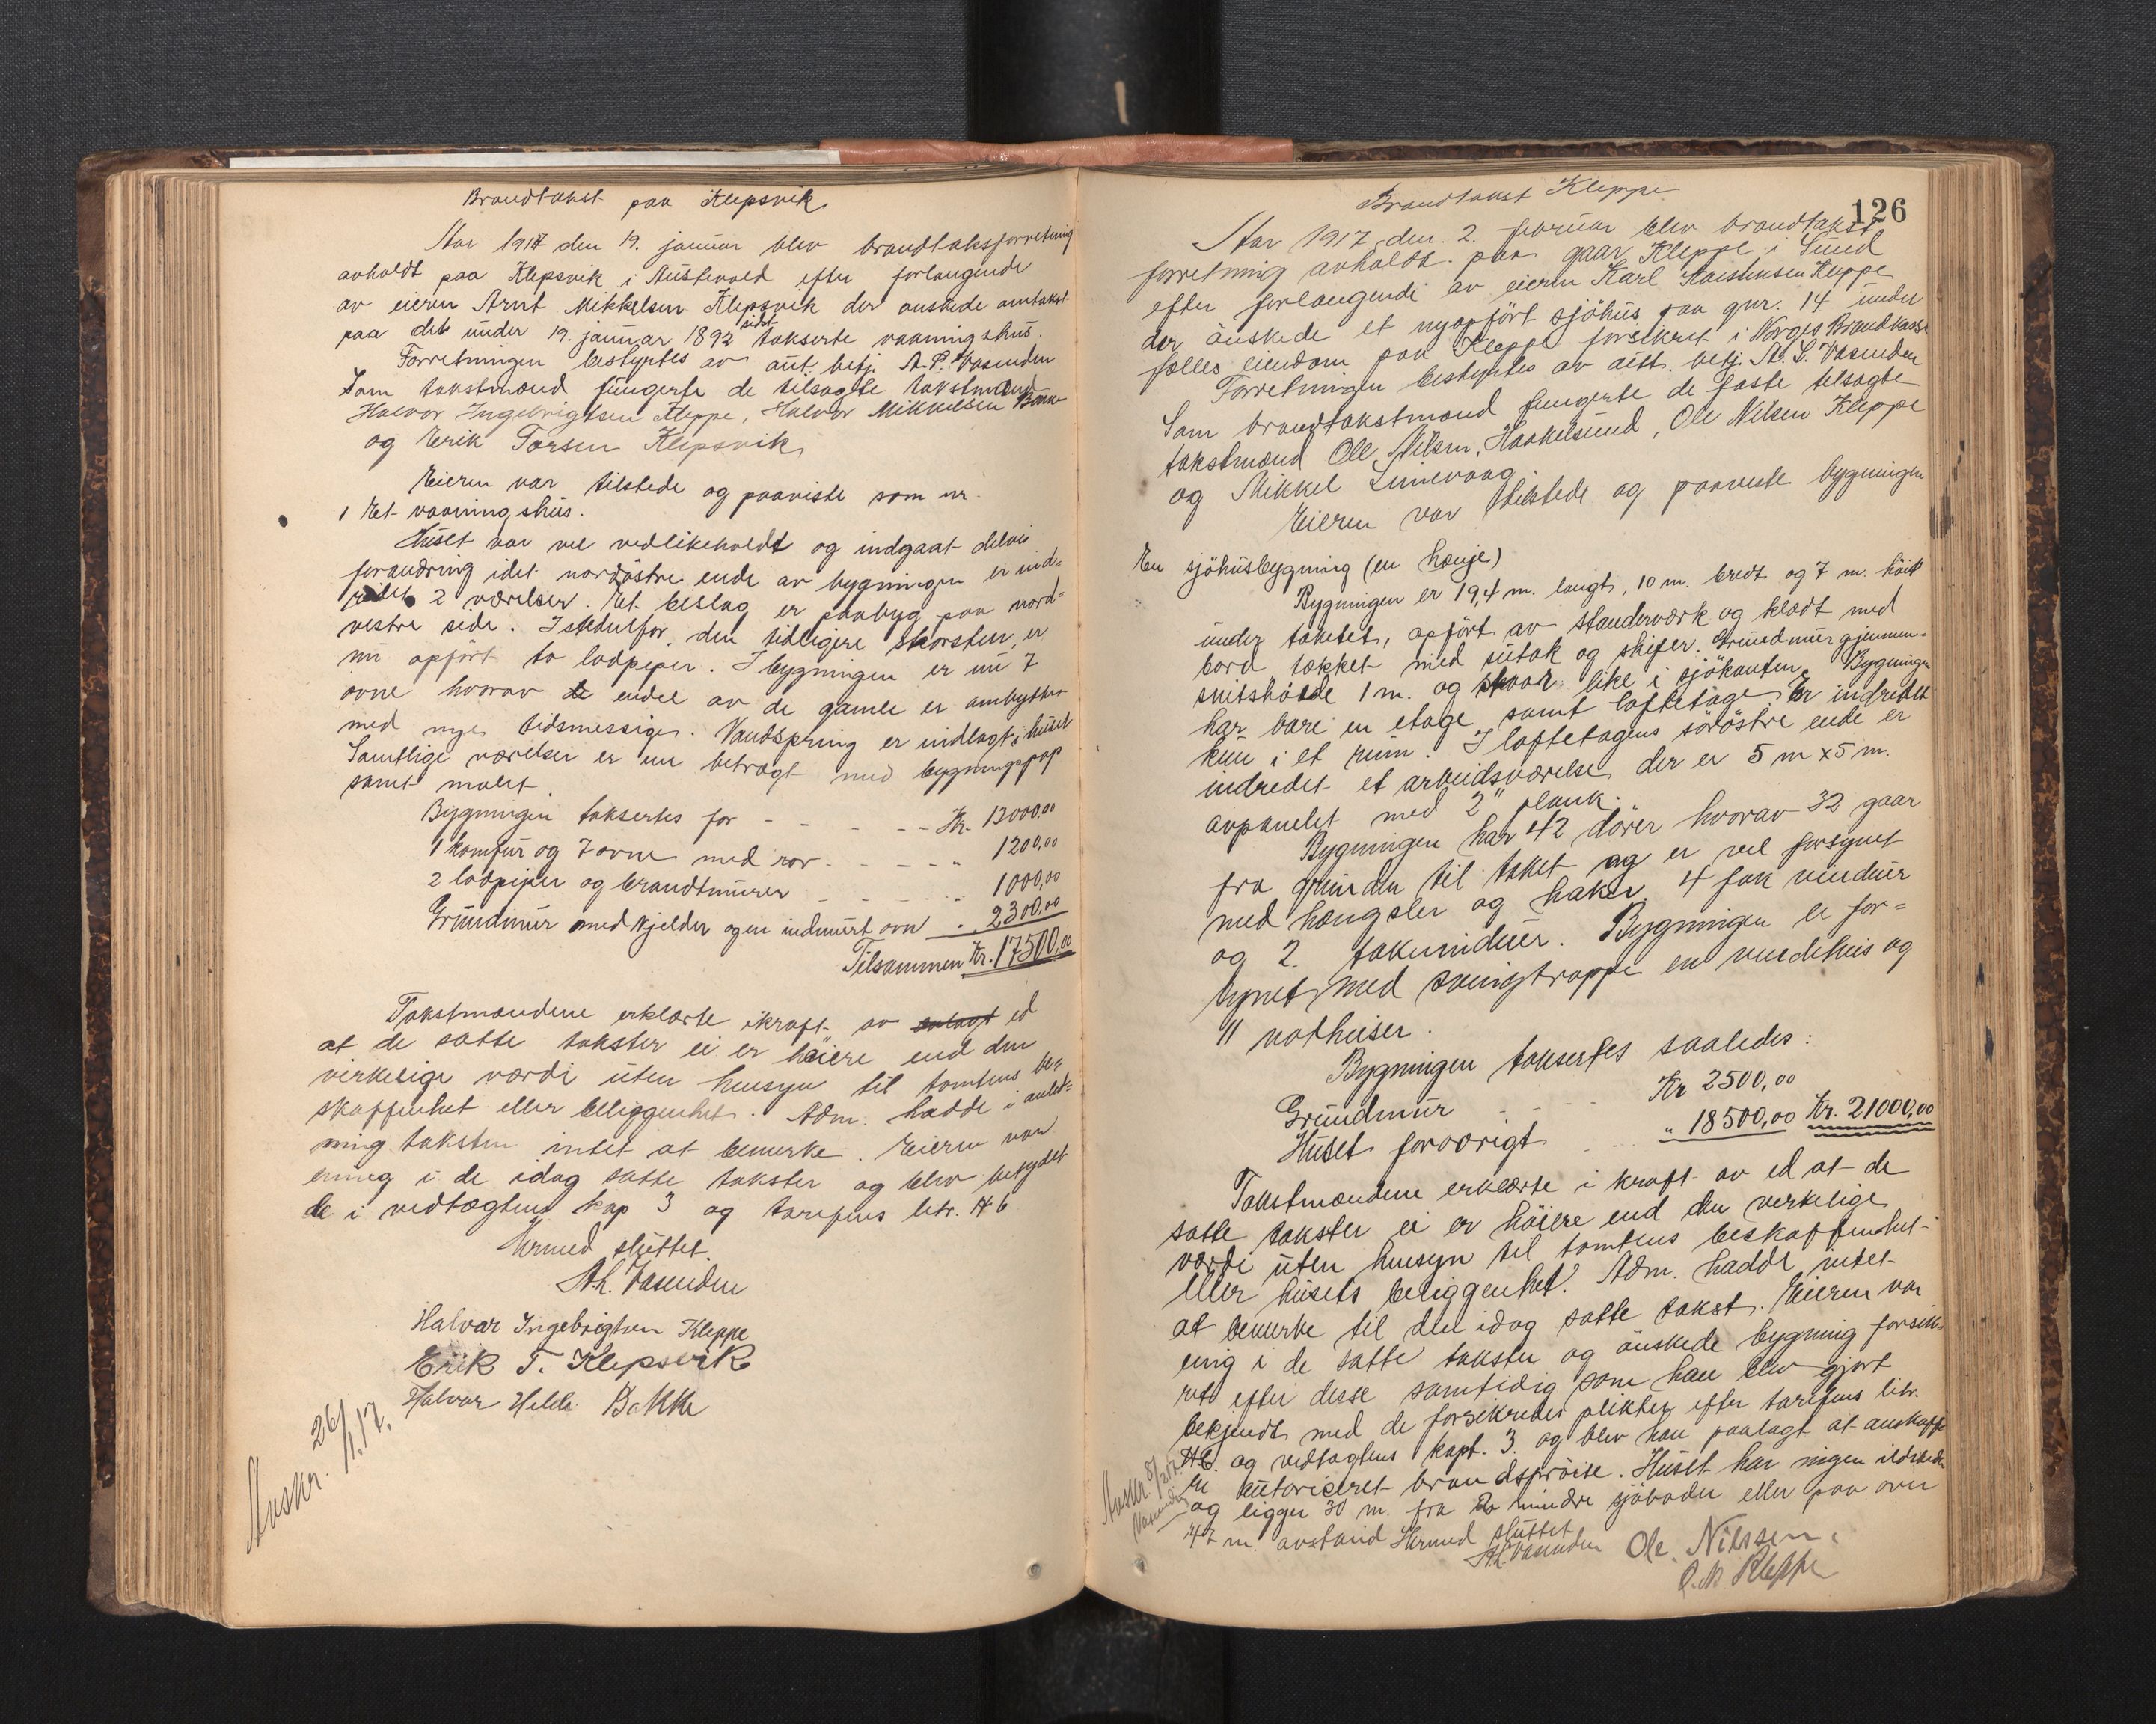 Brandtakst paa Klepsvik
Aar 1917 den 19. januar blev brandtaksforretning
avholdt paa Klepsvik i Austevold efter forlangende
av eieren Arnt Mikkelsen Klepsvik der ønskede omtakst
paa det under 19. januar 1892 sidst takserte vaaningshus.
Forretningen bestyrtes av aut. betj. A. L. Vasenden
Som takstmænd fungerte de tilsagte takstmænd
Halvor Ingebrigtsen Kleppe, Halvor Mikkelsen Bakke
og Erik Torsen Klepsvik
Eieren var tilstede og paaviste som er
1 Et vaaningshus.
Huset var vel vedlikeholdt og indgaat delvis
forandring idet nordøstre ende av bygningen er ind-
redet 2 værelser. Et bislag er paabyg paa nord-
vestre side. Istedenfor den tidligere skorsten er
nu opført to lodpiper. I bygningen er nu 7
ovne hvorav endel av de gamle er ombyttet
med nye tidsmessige. Vandspring er indlagt i huset
Samtlige værelser er nu betragt med bygningspap
samt malet.
Bygningen takseres for - - - - - - Kr. 13000,00
1 komfur og 7 ovne med rør - - - - - " 1200,00
2 lodpiper og brandtmurer - - - - - " 1000,00
Grundmur med kjelder og en indmurt ovn - " 2300,00
Tilsammen Kr. 17500,00
Takstmændene erklærte ikraft av avlagt ed
at de satte takster ei er høiere end den
virkelige værdi uten hensyn til tomtens be-
skaffenhet eller beliggenhet. Adm. hadde i anled-
ning taksten intet at bemerke. Eieren var
enig i de idag satte takster og blev betydet
de i vedtægtens kap 3 og tarifens litr. H 6
Hermed sluttet.
A. L. Vasenden
Halvar Ingebrigtsen Kleppe
Erik T. Klepsvik
Halvar Helde Bakke
Avskr. 26/1.17.
126
Brandtakst Kleppe
Aar 1917 den. 2. februar blev brandtakst
forretning avholdt paa gaar Kleppe i Sund
efter forlangende av eieren Karl Karstensen Kleppe
der ønskede et nyopført sjøhus paa gnr. 14 under
fælles eiendom paa Kleppe forsikret i Norges Brandkasse
Forretningen bestyrtes av autt. betj. A. L. Vasenden
Som brandtakstmænd fungerte de faste tilsagte
takstmænd Ole Nilsen, Haakelsund, Ole Nilsen Kleppe
og Mikkel Limevaag.
Eieren var tilstede og paaviste bygningen
En sjøhusbygning (en hænje)
Bygningen er 19,4 m. langt, 10 m. bredt og 7 m. høit
under taketet, opført av standerværk og klædt med
bord tækket med sutak og skifer. Grundmur gjennem-
snitshøide 1 m. og staar like i sjøkanten. Bygningen
har bare en etage samt loftetage. Er indredet
kun i et rum. I loftetagens sørøstre ende er
indredet et arbeidsværelse der er 5 m x 5 m.
avpanelet med 2" plank.
Bygningen har 42 dører hvorav 32 gaar
fra grunden til taket og er vel forsynet
med hængsler og haker 4 fak vinduer
og 2 takvinduer. Bygningen er for-
synet med svingtrappe en vindehus og
11 nothuser.
Bygningen takseres saaledes:
Grundmur - - - Kr 2500,00
Huset forøvrigt - " 18500,00 Kr. 21000,00
Takstmændene erklærte i kraft av ed at de
satte takster ei er høiere end den verkelige
værdi uten hensyn til tomtens beskaffenhet
eller husets beliggenhet. Adm. hadde intet
at bemerke til den idag satte takst. Eieren var
enig i de satte takster og ønskede bygning forsik-
ret efter disse samtidig som han blev gjort
bekjendt med de forsikredes plikter efter tarifens litr.
H6. og vedtægtens kapt. 3. og blev han paalagt at anskaffe
en autoriseret brandsprøite. Huset har ingen ildsteder
og ligger 30 m. fra 2 mindre sjøboder eller paa over
47 m. avstand Hermed sluttet
A. L. Vasenden Ole. Nilssen.
O. N. Kleppe
Avskr. 8/2 17.
Vasenden